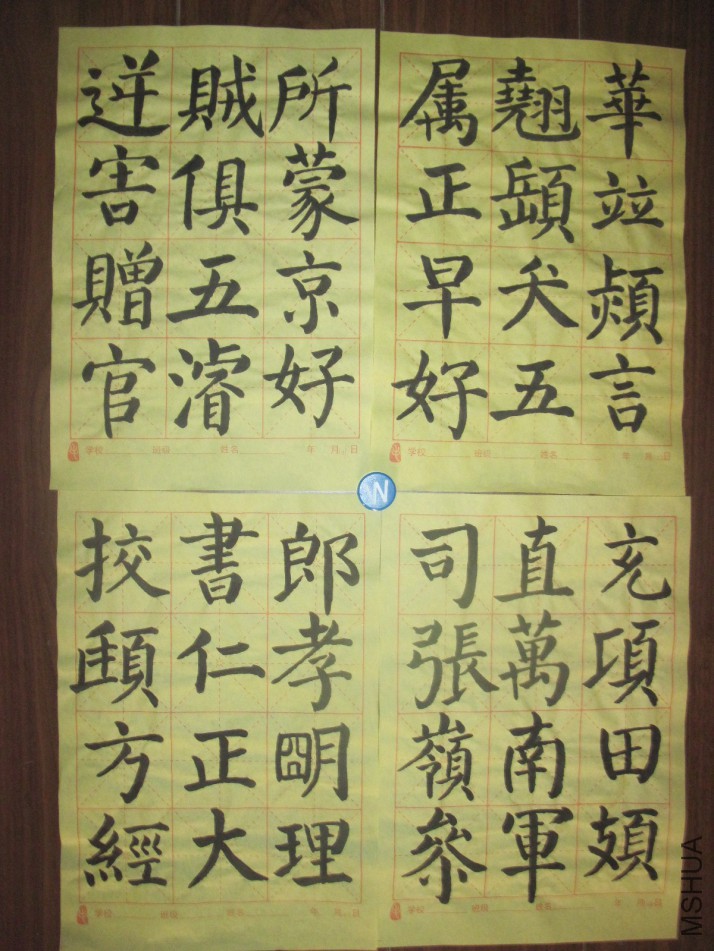 逆賊所
害俱蒙
贈五京
官濬好
属翹華
正頤竝
早夭熲
好五言
挍書郎
頲仁孝
方正朙
經大理
司直充
張萬頃
嶺南田
參軍頗
学校 班级 姓名 年 月 日
学校 班级 姓名 年 月 日
学校 班级 姓名 年 月 日
学校 班级 姓名 年 月 日
W
MSHUA